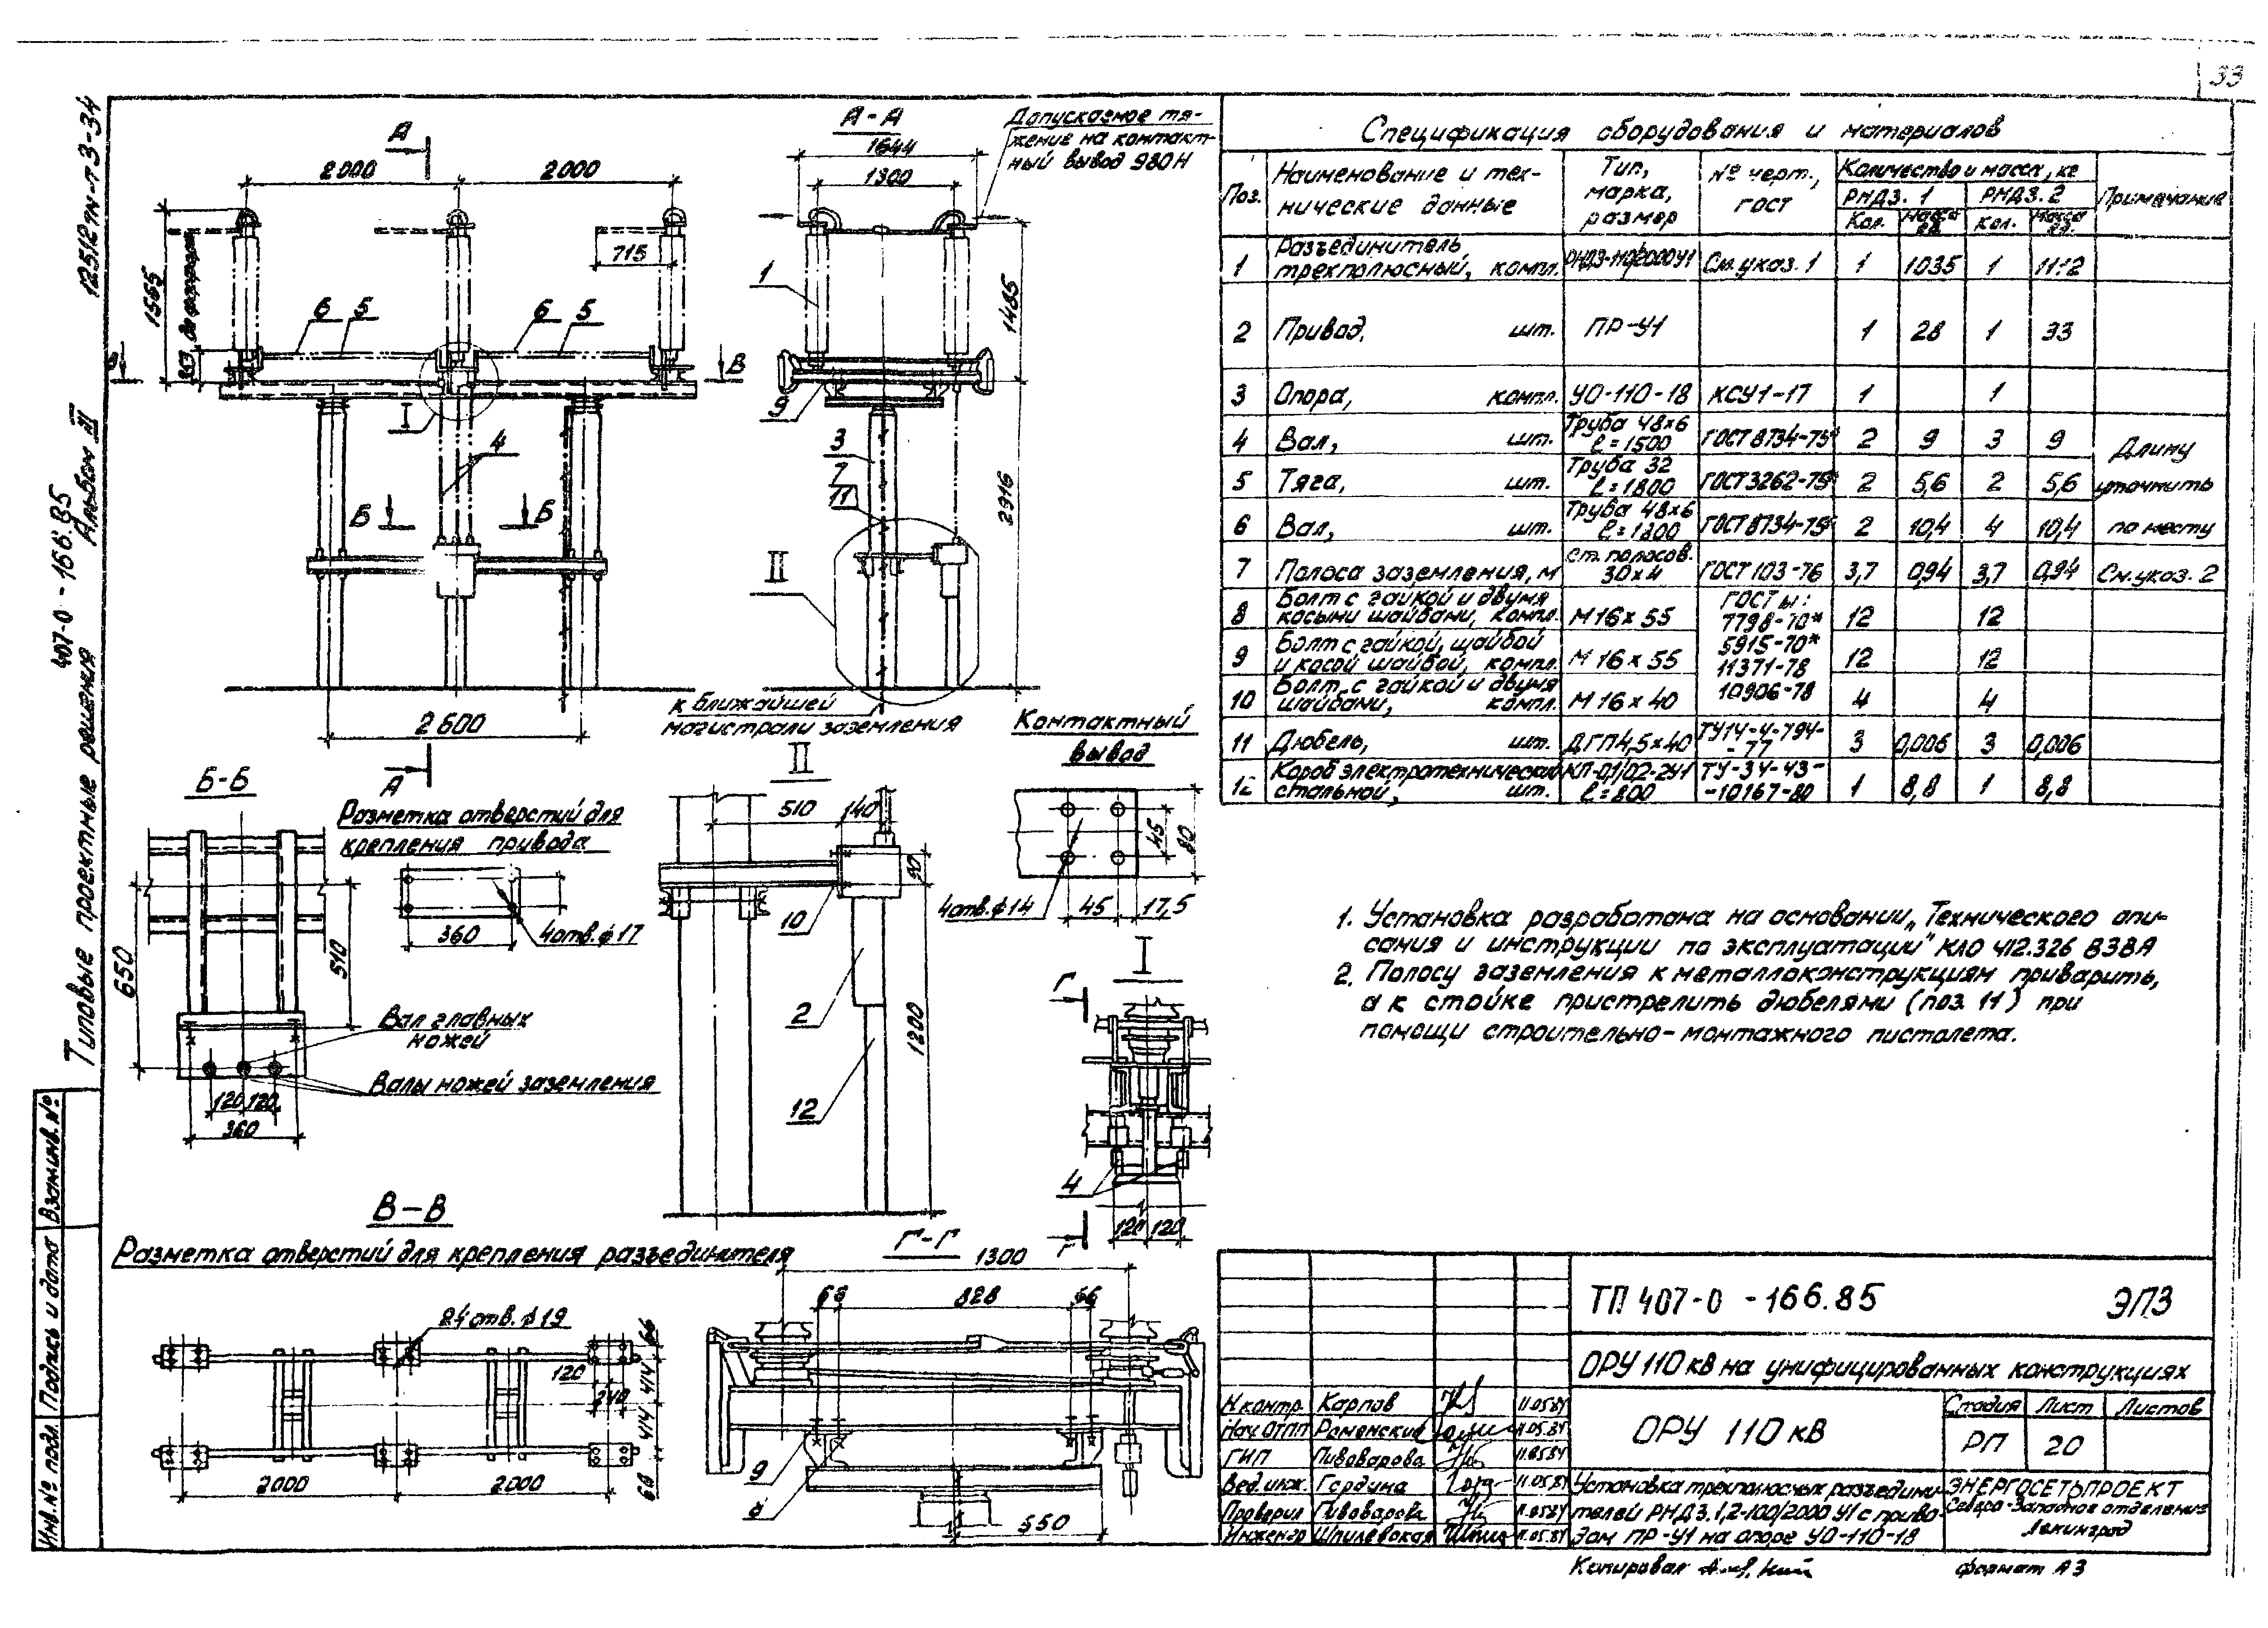 33
12512тм-т3-34
407-0-166.85
Альбом III
Типовые проектные решения
Взам.инв.№
Подпись и дата
Инв.№ подл
А
2000
2000
1565
715
6
5
6
5
В
I
4
Б
Б
2600
А
А-А
1644
1300
Допускаемое тя-
жение на контакт-
ный вывод 980Н
1
1485
9
3
7
11
2916
II
к ближайшей
магистрали заземления
Контактный
вывод
45
80
4отв.ф14
45
17,5
Б-Б
650
510
Вал главных
ножей
Валы ножей заземления
120
120
360
Разметка отверстий для
крепления привода
360
4отв.ф17
II
510
140
90
10
2
12
1200
I
Г
4
120
120
Г
В-В
Разметка отверстий для крепления разъединителя
24отв.ф19
66
120
414
240
414
2000
2000
Г-Г
1300
66
828
66
9
8
550
Спецификация оборудования и материалов
Поз. Наименование и тех-нические данные Тип, марка, размер № черт., ГОСТ Количество и масса, кг Примечание
РНДЗ.1 РНДЗ.2
Кол. Масса ед. Кол. Масса ед.
1 Разъединитель трехполюсный, компл. РНДЗ-110/2000У1 См.указ.1 1 1035 1 1112
2 Привод, шт. ПР-У1 1 28 1 33
3 Опора, компл. УО-110-18 КСУ1-17 1 1
4 Вал, шт. Труба 48х6 ℓ=1500 ГОСТ8734-75* 2 9 3 9 Длину
5 Тяга, шт. Труба 32 ℓ=1800 ГОСТ3262-75* 2 5,6 2 5,6 уточнить
6 Вал, шт. Труба 48х6 ℓ=1800 ГОСТ8734-75* 2 10,4 4 10,4 по месту
7 Полоса заземления, м ст. полосов. 30х4 ГОСТ103-76 3,7 0,94 3,7 0,94 См.указ.2
8 Болт с гайкой и двумя косыми шайбами, компл. М16х55 ГОСТы: 7798-70* 12 12
9 Болт с гайкой, шайбой и косой шайбой, компл. М16х55 5915-70* 11371-78 12 12
10 Болт с гайкой и двумя шайбами, компл. М16х40 10906-78 4 4
11 Дюбель, шт. ДГП4,5х40 ТУ14-4-794-77 3 0,006 3 0,006
12 Короб электротехнический стальной, шт. КП-0,1/0,2-2У1 ℓ=800 ТУ-34-43-10167-80 1 8,8 1 8,8
1. Установка разработана на основании „Технического опи-
сания и инструкции по эксплуатации" КЛО 412.326 838А
2. Полосу заземления к металлоконструкциям приварить,
а к стойке пристрелить дюбелями (поз. 11) при
помощи строительно-монтажного пистолета.
ТП 407-0-166.85 ЭПЗ
ОРУ 110 кВ на унифицированных конструкциях
Н.контр. Карпов 11.05.84
Нач.ОТПП Роменский 11.05.84
ГИП Пивоварова 11.05.84
Вед.инж. Гордина 11.05.84
Проверил Пивоварова 11.05.84
Инженер Шпилевская 11.05.84
ОРУ 110 кВ
Стадия Лист Листов
РП 20
Установка трехполюсных разъедини-
телей РНДЗ.1,2-100/2000 У1 с приво-
дом ПР-У1 на опоре УО-110-18
ЭНЕРГОСЕТЬПРОЕКТ
Северо-Западное отделение
Ленинград
Копировал
Формат А3